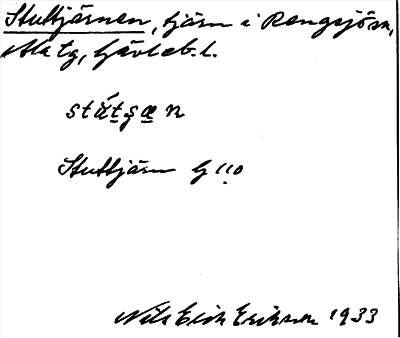 Stuttjärnen, tjärn i Rengsjö sn,
Ala tg, Gävleb. l.
Stuttjärn G 110
Nils Erik Erikson 1933